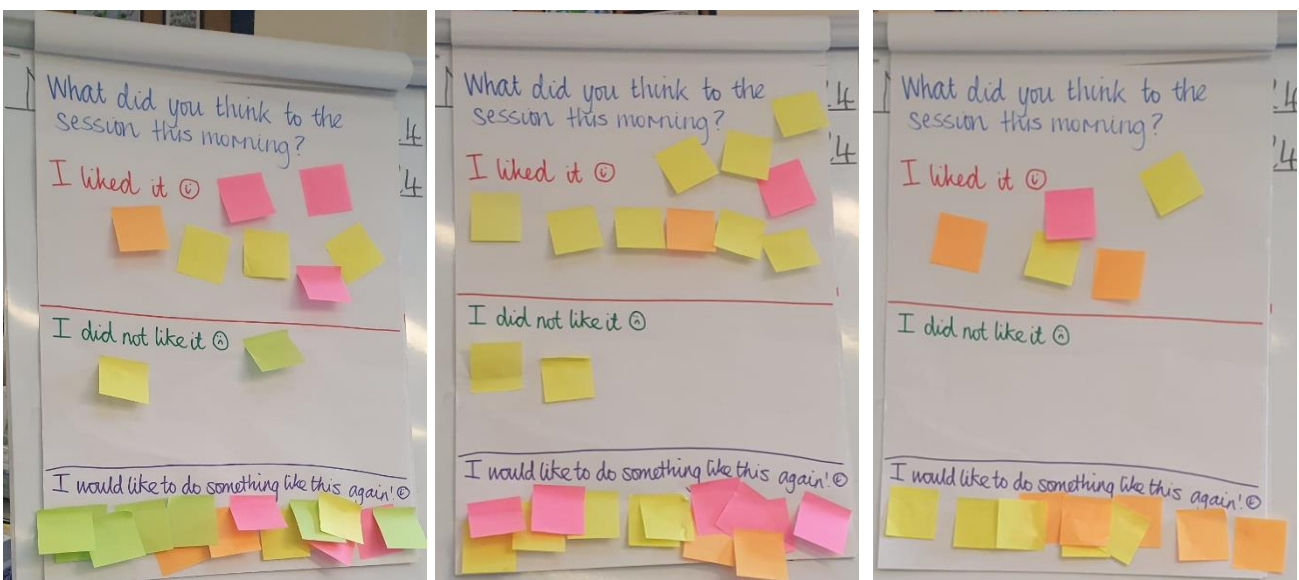 What did you think to the
session this morning?
I liked it ☺
I did not like it ☹
I would like to do something like this again! ☺
What did you think to the
session this morning?
I liked it ☺
I did not like it ☹
I would like to do something like this again! ☺
What did you think to the
session this morning?
I liked it ☺
I did not like it ☹
I would like to do something like this again! ☺